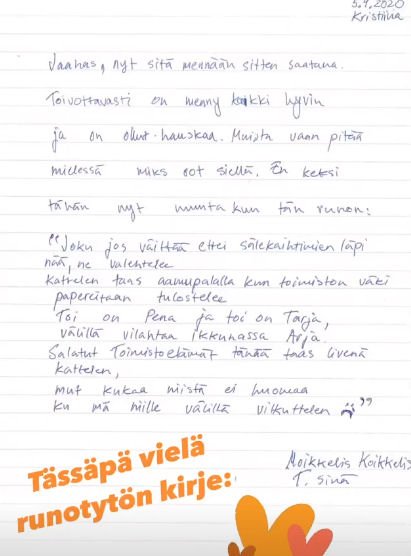 5.9.2020
Kristiina
Jaahas, nyt sitä mennään sitten saatana.
Toivottavasti on menny kaikki hyvin
ja on ollut hauskaa. Muista vaan pitää
mielessä miks oot siellä. En keksi
tähän nyt muuta kun tän runon:
"Joku jos väittää ettei sälekaihtimien läpi
nää, ne valehtelee
Kattelen taas aamupalalla kun toimiston väki
papereitaan tulostelee
Toi on Pena ja toi on Tarja,
välillä vilahtaa ikkunassa Arja.
Salatut Toimistoelämät tänää taas livenä
kattelen,
mut kukaa niistä ei huomaa
ku mä niille välillä vilkuttelen"
Moikkelis Koikkelis
T. sinä
Tässäpä vielä
runotytön kirje: